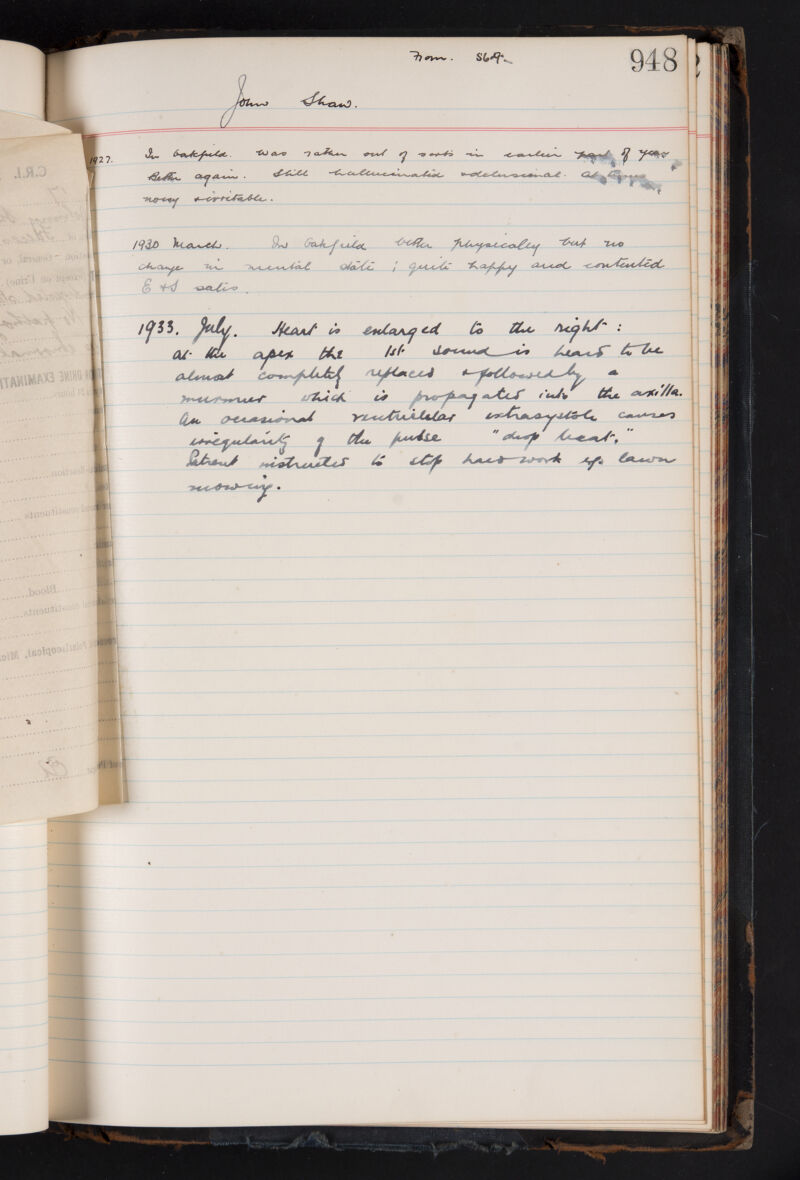 From. 569.
948
John Shaw.
1927. In Oakfield. Was rather out of sorts in earlier part of year
Better again. Still hallucinated & delusional. At times
noisy & irritable.
1930 March. In Oakfield better physically but no
change in mental state; quite happy and contented
E & S satis.
1933. July. Heart is enlarged to the right:
at the apex the 1st sound is heard to be
almost completely replaced & followed by a
murmur which is propagated into the axilla.
An occasional ventricular extrasystole causes
irregularity of the pulse "drop beat."
Patient instructed to stop hard work eg. lawn
mowing.